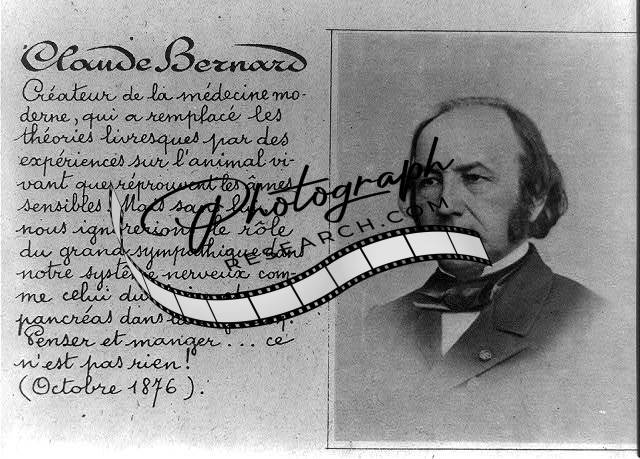 Claude Bernard
Créateur de la médecine mo-
derne, qui a remplacé les
théories livresques par des
expériences sur l'animal vi-
vant que réprouvent les âmes
sensibles. Mais sans lui
nous ignorerions le rôle
du grand sympathique dans
notre système nerveux com-
me celui du
pancréas dans
Penser et manger ... ce
n'est pas rien!
(Octobre 1876).
Photograph
RESEARCH.COM